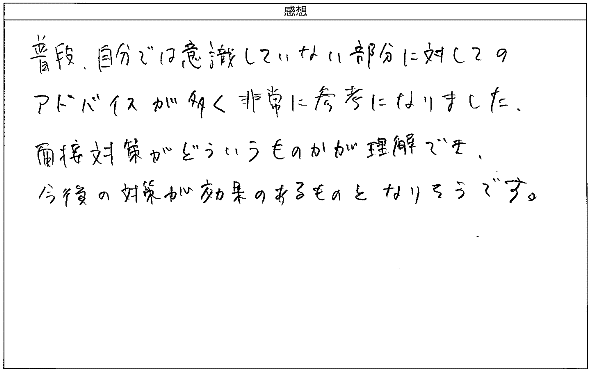 感想
普段、自分では意識していない部分に対しての
アドバイスが多く非常に参考になりました。
面接対策がどういうものかが理解でき、
今後の対策が効果のあるものとなりそうです。